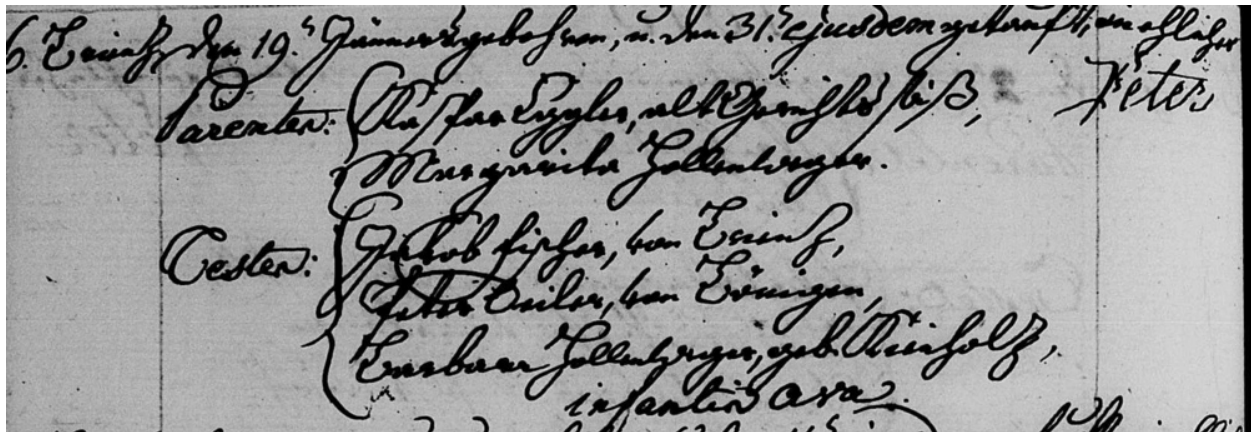 6. Brienz, den 19.ᵗ Jänners gebohren, u. den 31.ᵗ ejusdem getauft, ein ehlicher
Peter
Parenten: Kaspar Eggler, alt Gerichtsäß,
Margarita Zollenweger.
Testes: Jakob Fischer, von Brienz,
Peter Seiler, von Bönigen,
Barbara Zollenweger, geb. Kienholz,
infantis ava.